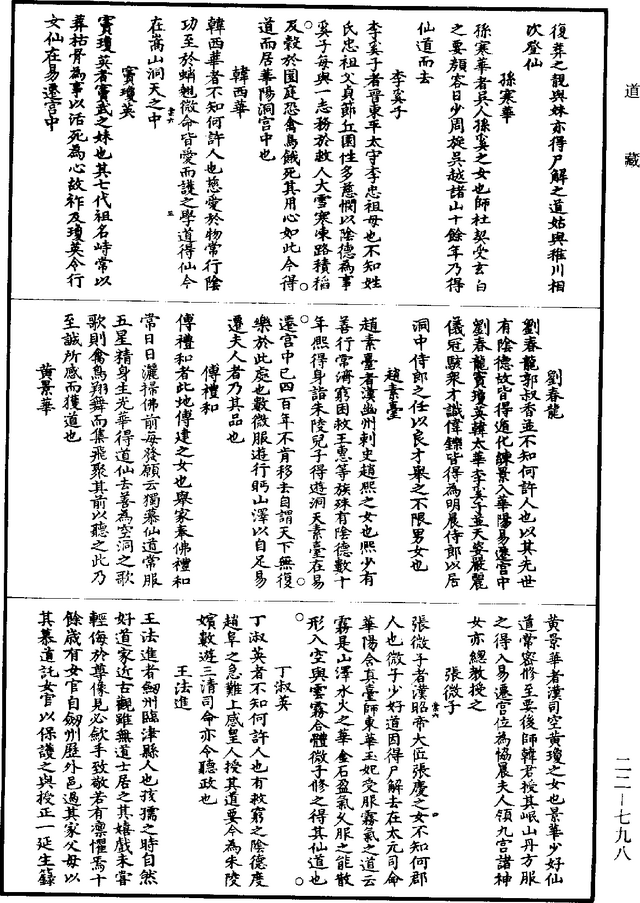 道藏
復葬之靚與妹亦得尸解之道姑與稚川相
次登仙
孫寒華
孫寒華者吳人孫奚之女也師杜契受玄白
之要顏容日少周旋吳越諸山十餘年乃得
仙道而去
李奚子
李奚子者晉東平太守李忠祖母也不知姓
氏忠祖父貞節丘園性多慈憫以陰德為事
奚子每與一志務於救人大雪寒凍路積稻
及穀於園庭恐禽鳥餓死其用心如此今得
道而居華陽洞宮中也
韓西華
韓西華者不知何許人也慈愛於物常行陰
功至於蛸翹微命皆愛而護之學道得仙今
在嵩山洞天之中
竇瓊英
竇瓊英者竇武之妹也其七代祖名峙常以
葬枯骨為事以活死為心故祚及瓊英今行
女仙在易遷宮中
劉春龍
劉春龍郭叔香並不知何許人也以其先世
有陰德故皆得遁化鍊景入華陽易遷宮中
劉春龍竇瓊英韓太華李奚子並天姿嚴麗
儀冠駭眾才識偉鑠皆得為明晨侍郎以居
洞中侍郎之任以良才舉之不限男女也
趙素臺
趙素臺者漢幽州刺史趙熙之女也熙少有
善行常濟窮困救王惠等族殊有陰德數十
年熙得身詣朱陵兒子得遊洞天素臺在易
遷宮中已四百年不肯移去自謂天下無復
樂於此處也數微服遊行眄山澤以自足易
遷夫人者乃其品也
傅禮和
傅禮和者此地傅建之女也舉家奉佛禮和
常日日灑掃佛前每發願云獨慕仙道常服
五星精身生光華得道仙去善為空洞之歌
歌則禽鳥翔舞而集飛聚其前以聽之此乃
至誠所感而獲道也
黃景華
黃景華者漢司空黃瓊之女也景華少好仙
道常密修至要後師韓君授其岷山丹方服
之得入易遷宮位為協晨夫人領九宮諸神
女亦總教授之
張微子
張微子者漢昭帝大匠張慶之女不知何郡
人也微子少好道因得尸解去在太元司命
華陽含真臺師東華玉妃受服霧氣之道云
霧是山澤水火之華金石盈氣久服之能散
形入空與雲霧合體微子修之得其仙道也
丁淑英
丁淑英者不知何許人也有救窮之陰德度
趙阜之急難上感皇人授其道要今為朱陵
嬪數遊三清司命亦令聽政也
王法進
王法進者劍州臨津縣人也孩孺之時自然
好道家近古觀雖無道士居之其嬉戲未嘗
輕侮於尊像見必歛手致敬若有凛懼焉十
餘歲有女官自劍州歷外邑過其家父母以
其慕道託女官以保護之與授正一延生籙
二二—七九八